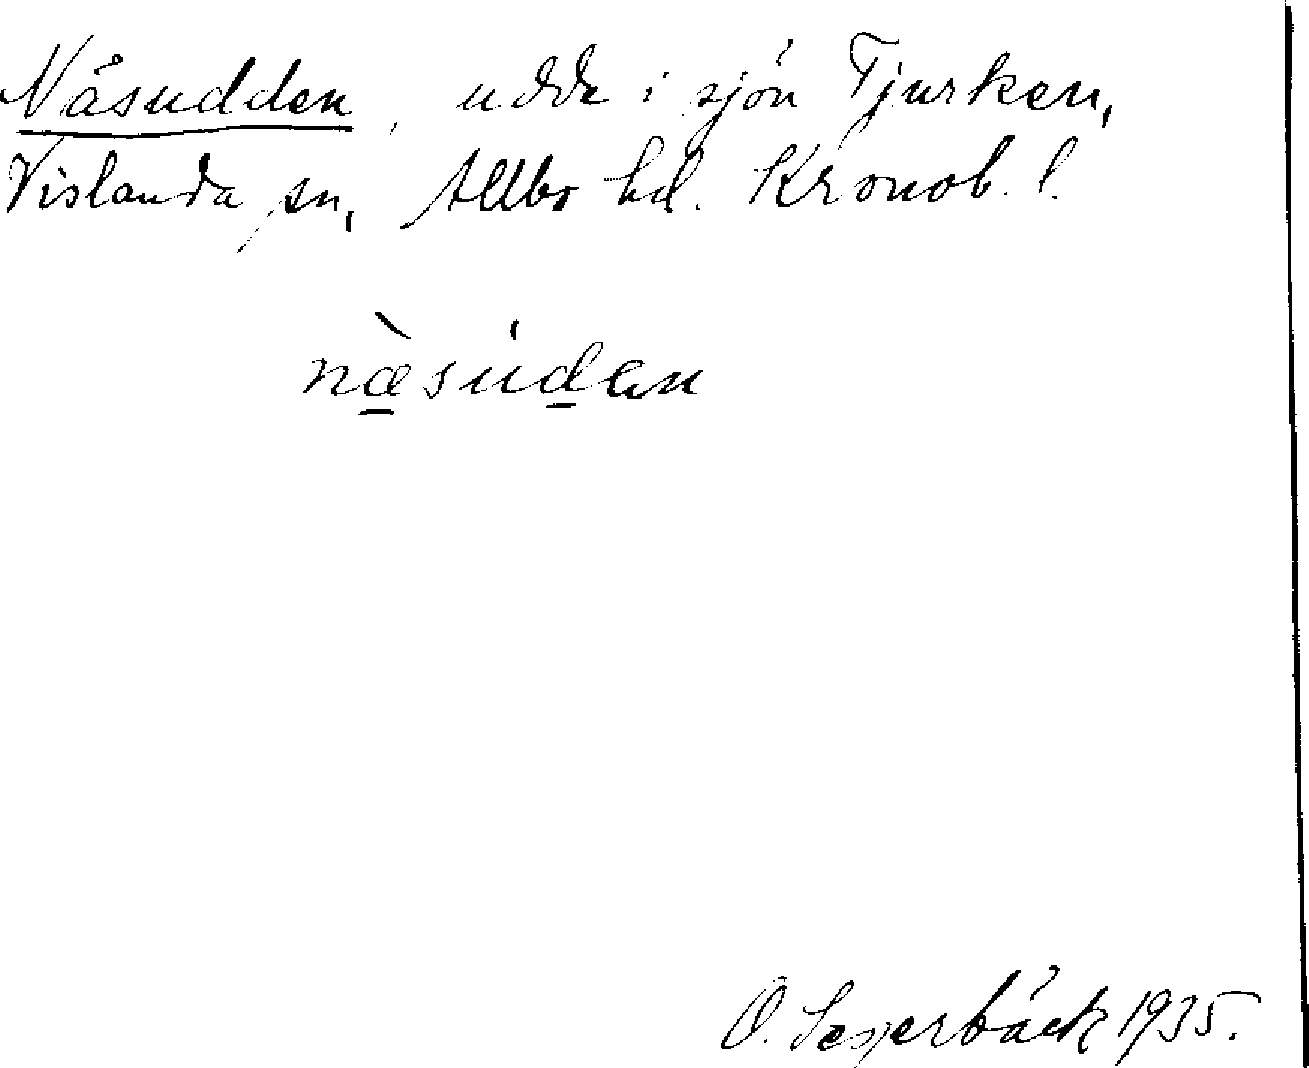 Näsudden, udde i sjön Tjurken,
Vislanda sn, Allbo hd. Kronob. l.
næ̀súden
O. 1935.